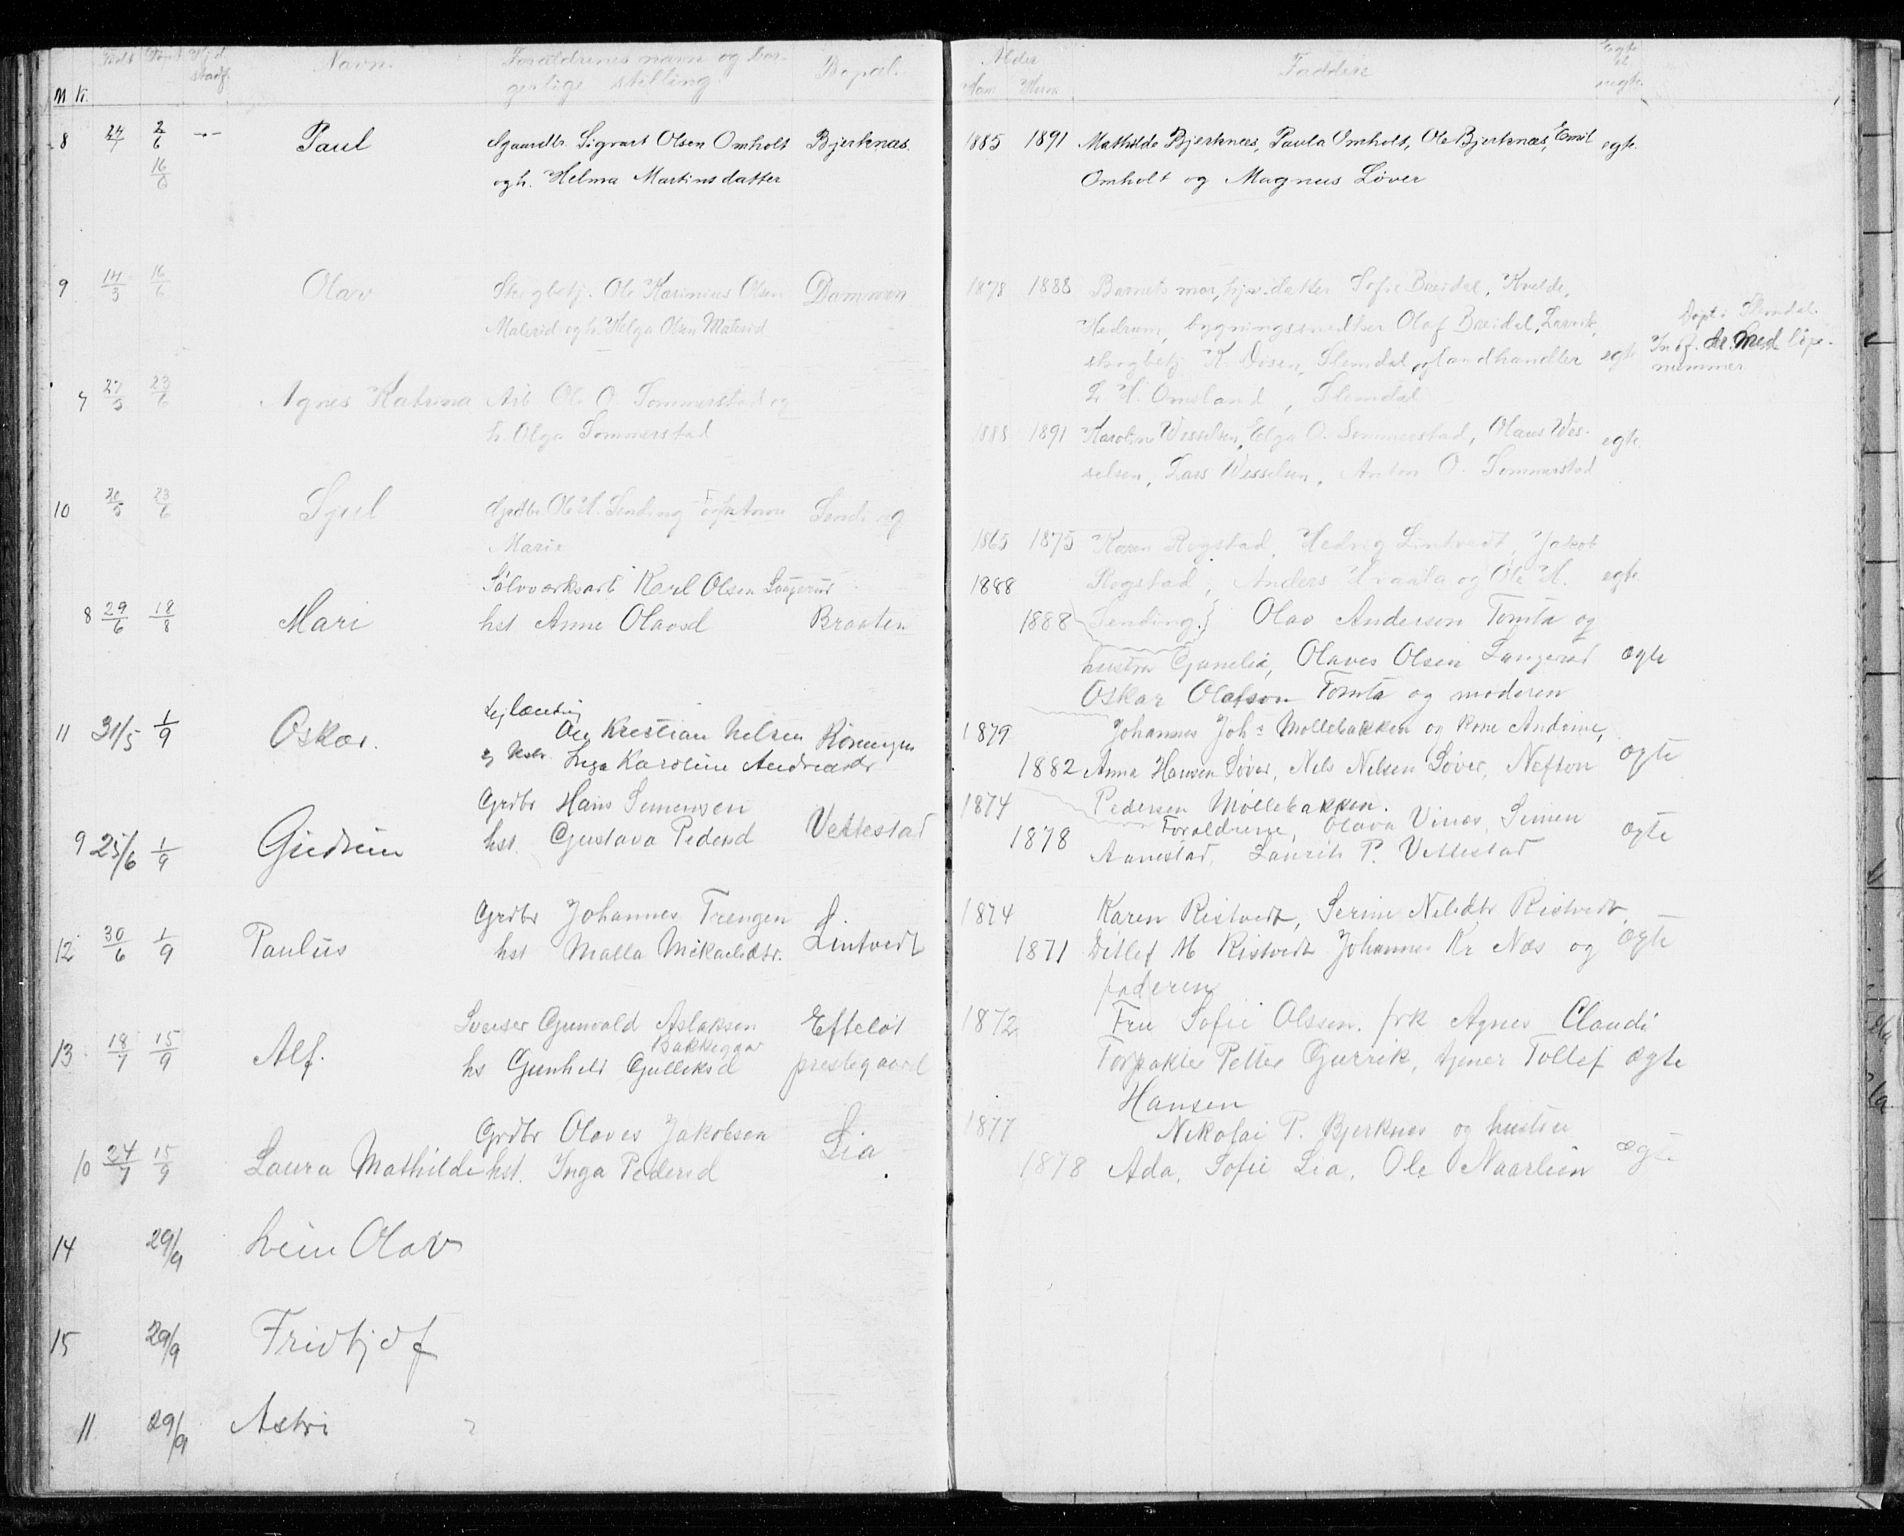 M K. Født Døbt Hjd. stadf. Navn. Forældrenes navn og bor- Bopæl. Alder Faddere Egte el.
gerlige stilling. Mam Kvin uegte.
8 24/4 2/6 -"- Paul Gaardbr. Sigvart Olsen Omholt Bjerknæs. 1885 1891 Mathilde Bjerknæs, Paula Omholt, Ole Bjerknæs, Emil egte.
16/6 og h. Helma Martinsdatter Omholt og Magnus Løver
9 14/3 16/6 Olav Skogbetj. Ole Karinius Olsen Dammen 1878 1888 Barnets mor, Sofie Bærdal, Kvelde,
Malerød og h. Helga Olsen Malerød Hedrum, bygningssnedker Olaf Bærdal, Larvik, Døpt i Slemdal.
skogbetj. K. Olsen, Slemdal og landhandler egte
L. H. Omsland, Slemdal nummer
7 27/5 23/6 Agnes Katrina Arb. Ole O. Sommerstad og 1888 1891 Karoline Wesselsen, Elga O. Sommerstad, Olaus Wes- egte.
h. Olga Sommerstad selsen, Lars Wesselsen, Anton O. Sommerstad
10 20/5 23/6 Sjul Grdbr. Ole H. Sending og h. Anne Sending 1865 1875 Karen Rogstad, Hedvig Lintvedt, Jakob
Marie 1888 Rogstad, Anders Kraata og Ole H. egte.
Sølvverksarb Karl Olsen Langerud
8 29/6 18/8 Mari hst Anne Olavsd Braaten 1888 Sending.} Olav Anderson Tomta og
hustru Gunelia, Olaves Olsen Langerud ægte
Oskar Olafson Tomta og moderen
11 31/5 1/9 Oskar. Kristian Nilsen 1879 Johannes Joh. Møllebakken og kone Andrine,
og Hstr. Inga Karoline Andreasdtr 1882 Anna Hansen Løver, Nils Nilsen Løver, Nefton ægte
Grdbr Hans Simensen 1874 Pedersen Møllebakken.
9 25/6 1/9 Gudrun hst. Gustava Pedersd Vettestad 1878 Forældrene, Olava Vinæs, Simen ægte
Aanestad, Laurits P. Vettestad
12 30/6 1/9 Paulus Grdbr Johannes Trengen Lintvedt 1874 Karen Ristvedt, Serine Nilsdtr Ristvedt,
hst Malla Mikaelsdtr. 1871 Ditlef M Ristvedt Johannes Kr Næs og ægte
faderen
13 18/7 15/9 Alf. Sveiser Gunvald Aslaksen Efteløt 1872 Fru Sofie Olssen. frk Agnes Claudi
Bakkegaar
hs Gunhild Gulliksd prestegaard Forpakter Petter Gurrik, tjener Tollef ægte
Hansen
10 24/7 15/9 Laura Mathilde Grdbr Olaves Jakobsen Lia 1877 Nikolai P. Bjerknes og hustru
hst. Inga Pedersd 1878 Ada, Sofie Lia, Ole Naarlien ægte
14 29/9 Svein Olav
15 29/9 Fridtjof
11 29/9 Astri